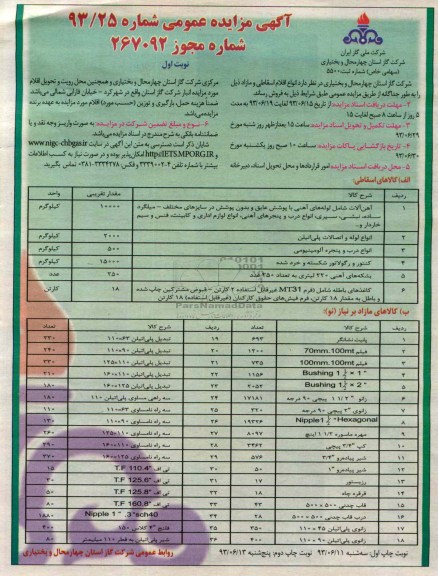 آگهی مزایده عمومی شماره ۹۳/۲۵
شماره مجوز ۲۶۷۰۹۲
نوبت اول
شرکت ملی گاز ایران
شرکت گاز استان چهارمحال و بختیاری
(سهامی خاص) شماره ثبت ۵۵۰
شرکت گاز استان چهارمحال و بختیاری در نظر دارد انواع اقلام اسقاطی و مازاد ذیل
را به طور جداگانه از طریق مزایده عمومی طبق شرایط ذیل به فروش رساند.
۲- مهلت دریافت اسناد مزایده: از تاریخ ۹۳/۰۶/۱۵ لغایت ۹۳/۰۶/۱۹ به مدت
۵ روز از ساعت ۸ صبح لغایت ۱۵
۳- مهلت تکمیل و تحویل اسناد مزایده: ساعت ۱۵ بعدازظهر روز شنبه مورخ
۹۳/۰۶/۲۹
۴- تاریخ بازگشایی پاکات مزایده: ساعت ۱۰ صبح روز یکشنبه مورخ
۹۳/۰۶/۳۰
۵- محل دریافت اسناد مزایده: امور قراردادها و محل تحویل اسناد، دبیرخانه
مرکزی شرکت گاز استان چهارمحال و بختیاری و همچنین محل رویت و تحویل اقلام
مورد مزایده انبار شرکت گاز استان واقع در شهرکرد - خیابان فارابی شمالی می‌باشد
ضمناً هزینه حمل، بارگیری و توزین (حسب مورد) اقلام مورد مزایده به عهده برنده
مزایده می‌باشد.
۶- نوع و مبلغ تضمین شرکت در مزایده: به صورت واریز وجه نقد و یا
ضمانتنامه بانکی به شرح مندرج در اسناد مزایده می‌باشد.
شایان ذکر است دسترسی به متن این آگهی در سایت www.nigc-chbgas.ir
و http://IETS.MPORG.IR امکان‌پذیر بوده و در صورت نیاز به کسب اطلاعات
بیشتر با شماره تلفن ۴-۳۳۳۹۰۰۲ و فکس ۳۳۳۴۲۷۸-۰۳۸۱ تماس بگیرید.
الف) کالاهای اسقاطی:
ردیف شرح کالا مقدار تقریبی واحد
۱ آهن‌آلات شامل لوله‌های آهنی با پوشش عایق و بدون پوشش در سایزهای مختلف - میلگرد ۱۰۰۰۰ کیلوگرم
ساده، نبشی، سپری، انواع درب و پنجره‌های آهنی، انواع لوازم اداری و کابینت، فنس و سیم
خاردار و..
۲ انواع لوله و اتصالات پلی‌اتیلن ۲۰۰۰ کیلوگرم
۳ انواع درب و پنجره آلومینیومی ۵۰۰ کیلوگرم
۴ کنتور و رگولاتور شکسته و خرد شده ۱۵۰۰۰ کیلوگرم
۵ بشکه‌های آهنی ۲۲۰ لیتری به تعداد ۲۵۰ عدد ۲۵۰ عدد
۶ کاغذهای باطله شامل (فرم MT31 غیرقابل استفاده ۲ کارتن - قبوض مشترکین چاپ شده ۱۸ کارتن
و باطل به مقدار ۱۸ کارتن، فرم فیش‌های حقوق کارکنان (غیرقابل استفاده) ۱۸ کارتن
ParsNamadData
ب) کالاهای مازاد بر نیاز (نو):
ردیف شرح کالا تعداد ردیف شرح کالا تعداد
۱ پلیت نشانگر ۶۹۳ ۱۹ تبدیل پلی‌اتیلن ۶۳×۱۱۰ ۳۳۰
۲ فیلم 70mm.100mt ۱۲۰۰ ۲۰ تبدیل پلی‌اتیلن ۹۰×۱۱۰ ۲۴۰
۳ فیلم 100mm.100mt ۷۳۵ ۲۱ تبدیل پلی‌اتیلن ۱۱۰×۱۲۵
۴ Bushing ۱۱۵۶ ۲۲ تبدیل پلی‌اتیلن ۱۱۰×۱۶۰ ۲۱۰
۵ Bushing ۲۰۵۲ ۲۳ تبدیل پلی‌اتیلن ۱۲۵×۱۶۰ ۱۸۰
۶ زانو " ۱/۲ ۱ پیچی ۹۰ درجه ۱۷۱۸۱ ۲۴ سه راهی مساوی پلی‌اتیلن ۱۱۰ ۱۸۰
۷ زانوی "۲ پیچی ۹۰ درجه ۳۲۰ ۲۵ سه راه نامساوی ۶۳×۱۱۰ ۱۸۰
۸ Hexagonal Nipple ۱۹۳۲۶ ۲۶ سه راه نامساوی ۹۰×۱۱۰ ۱۳۰
۹ مهره ماسوره ۱/۲ ۱ اینچ ۸۰۹۷ ۲۷ سه راه نامساوی ۱۱۰×۱۲۵ ۲۶۰
۱۰ کپ "۳/۴ پیچی ۳۴۶۲ ۲۸ سه راه نامساوی ۱۱۰×۱۶۰ ۳۹۰
۱۱ شیر پیاده‌رو "۳/۴ ۵۷۶ ۲۹ سه راه نامساوی ۱۲۵×۱۶۰ ۳۷۰
۱۲ شیر پیاده‌رو "۱ ۵۰ ۳۰ تی اف T.F 110.4" ۱۵
۱۳ رزیستور ۱۷ ۳۱ تی اف T.F 125.6" ۳۰
۱۴ قرقره چاه ۱۸ ۳۲ تی اف T.F 125.8" ۵۰
۱۵ قاب چدنی ۵۰۰×۵۰۰ ۴۳ ۳۳ تی اف T.F 160.8" ۸۰
۱۶ درب قاب چدنی ۵۰۰×۵۰۰ ۲۸ ۳۴ Nipple 1 ". 3 "ech40 ۱۸۸۰
۱۷ زانوی پلی‌اتیلن ۴۵×۱۱۰ ۳۵۰ ۳۵ فلنج "۴ کلاس ۱۵۰ ۴۰۰
۱۸ زانوی پلی‌اتیلن ۹۰×۱۱۰ ۴۰۰ ۳۶ شیر پلی‌اتیلن به قطر ۱۱۰ میلیمتر ۸۰
نوبت چاپ اول: سه‌شنبه ۹۳/۰۶/۱۱ نوبت چاپ دوم: پنج‌شنبه ۹۳/۰۶/۱۳ روابط عمومی شرکت گاز استان چهارمحال و بختیاری